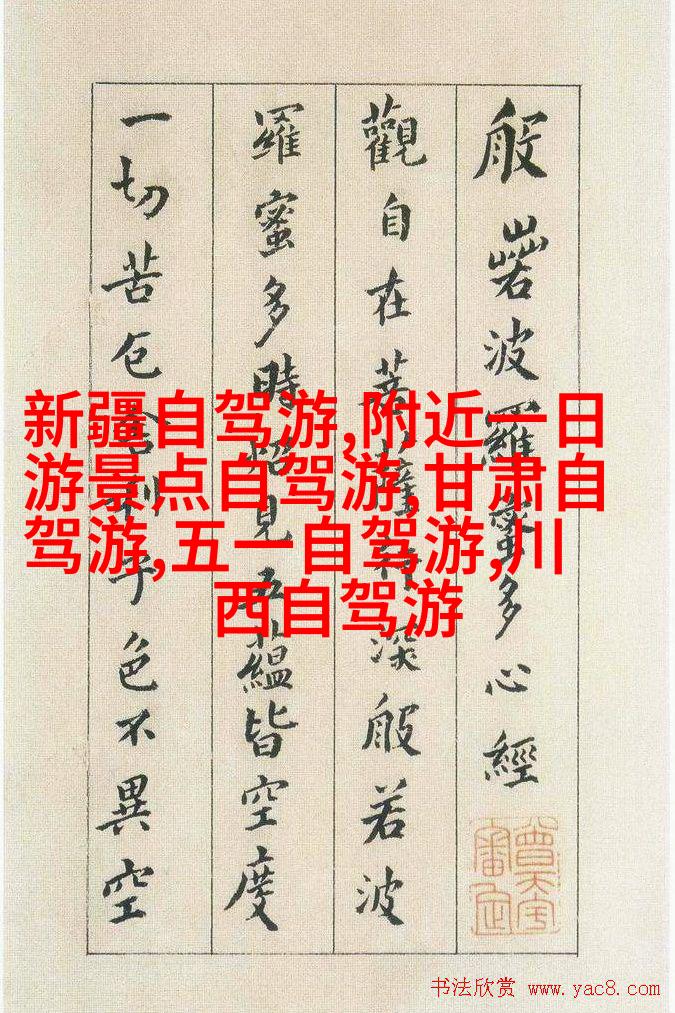 般若波羅蜜多心經
觀自在菩薩行深般若波
羅蜜多時照見五蘊皆空度
一切苦厄舍利子色不異空
新疆自驾游,附近一日
游景点自驾游,甘肃自
驾游,五一自驾游,川
西自驾游
书法欣赏 www.yac8.com